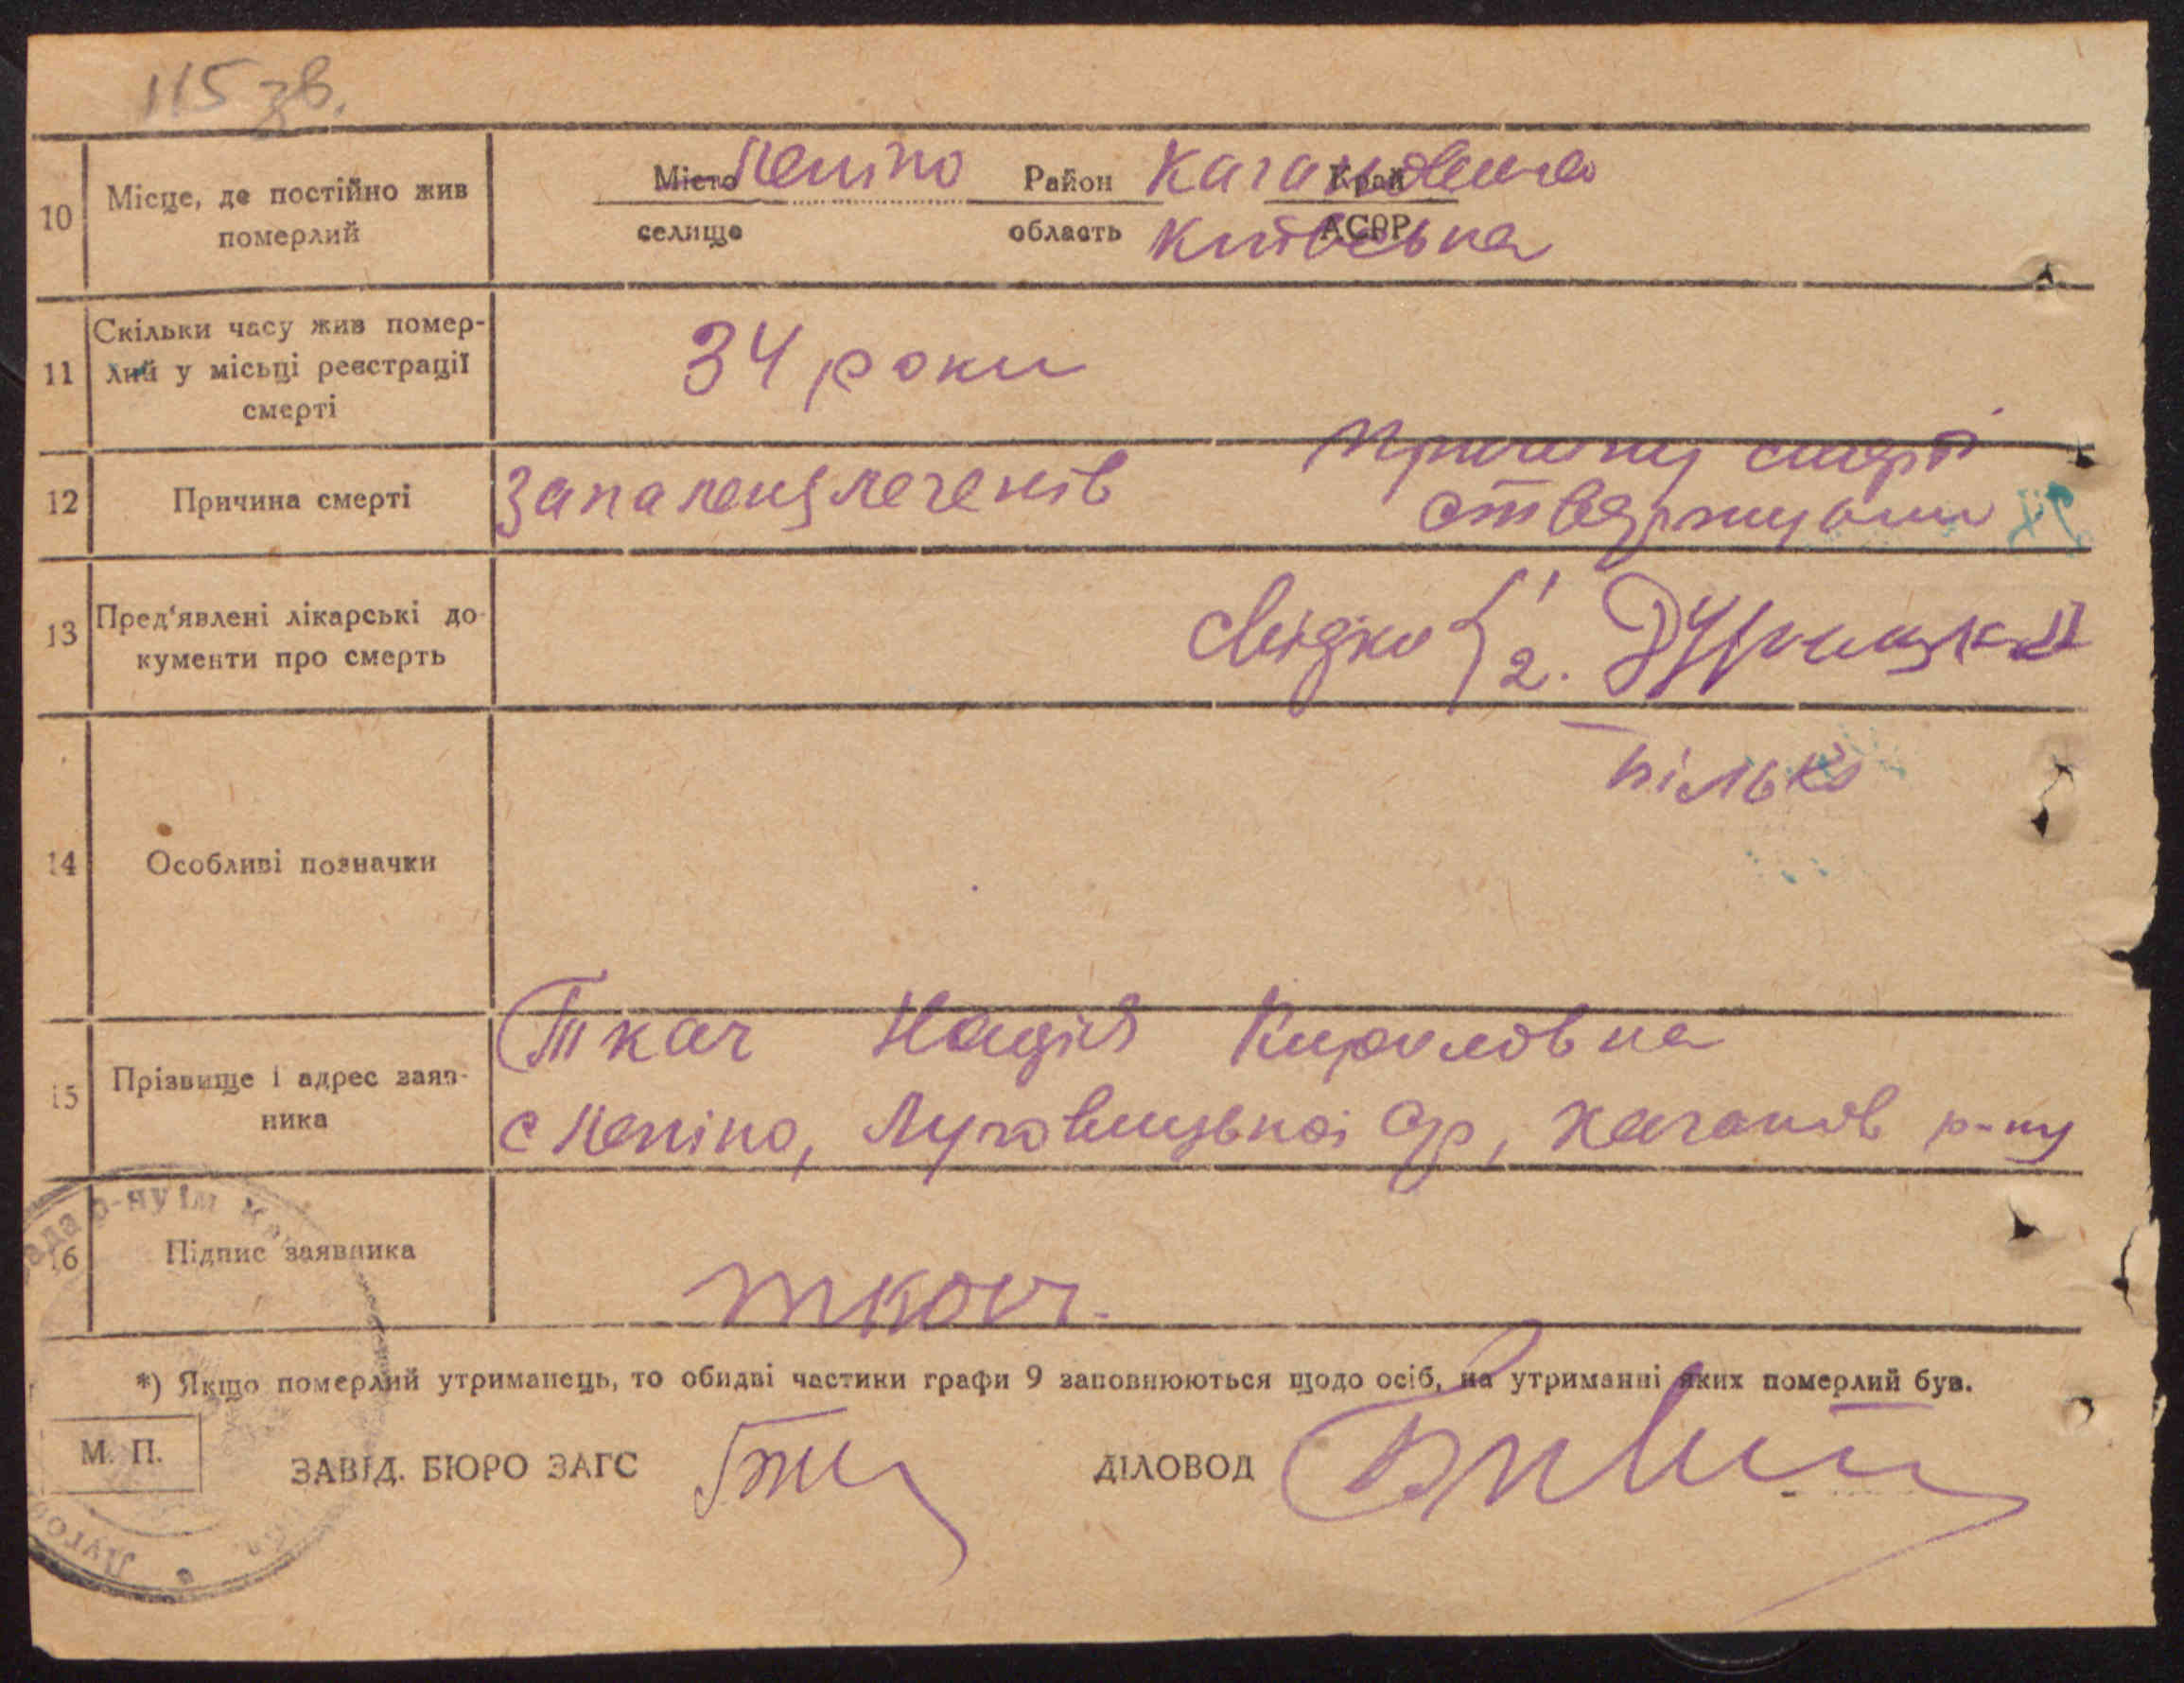 115 зв.
10 Місце, де постійно жив померлий
Місто Леніно Район Кагановича Край
селище область Київська АСРР
11 Скільки часу жив померлий у місьці реєстрації смерті
34 роки
12 Причина смерті
Запаленя легенів
Причину смерті
ствержуали
13 Пред'явлені лікарські документи про смерть
свідки 1
2.
14 Особливі позначки
15 Прізвище і адрес заявника
Ткач Надія Кириловна
с Леніно, Луговицької с/р, Каганов р-ну
16 Підпис заявника
ткач.
*) Якщо померлий утриманець, то обидві частини графи 9 заповнюються щодо осіб, на утриманні яких померлий був.
М. П.
ЗАВІД. БЮРО ЗАГС
ДІЛОВОД